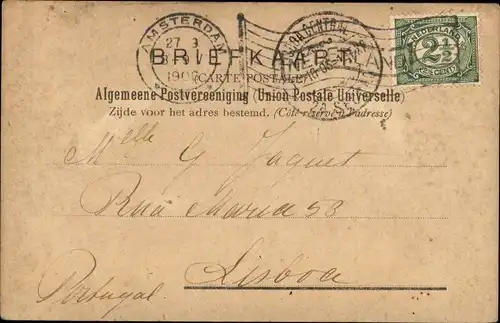 AMSTERDAM
27 3
BRIEFKAART
(CARTE POSTALE)
Algemeene Postvereeniging (Union Postale Universelle)
Zijde voor het adres bestemd. (Côté réservé à l'adresse)
CENTRAL
NEDERLAND
2½
CENT
Melle G Jaquet
Rua Maria 53
Lisboa
Portugal.